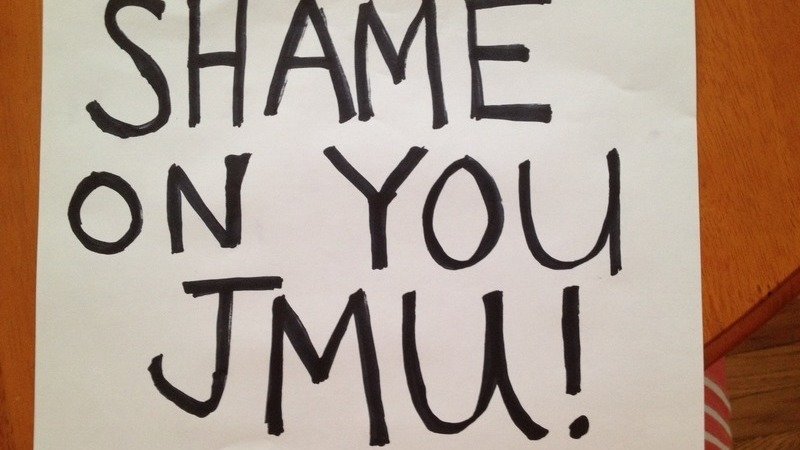 SHAME
ON YOU
JMU!